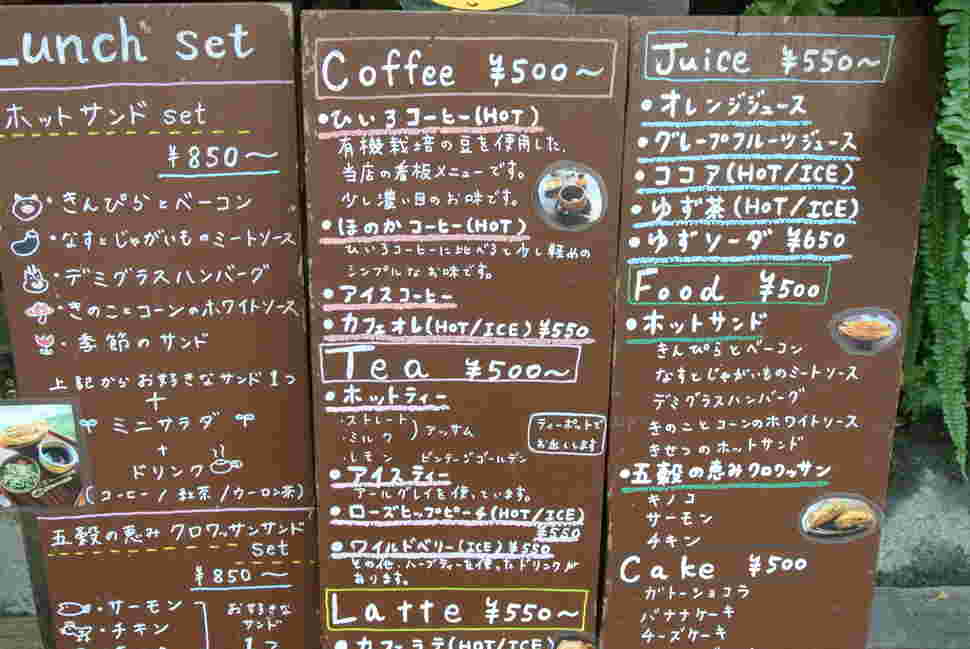 Lunch set
ホットサンド set
¥850〜
・きんぴらとベーコン
・なすとじゃがいものミートソース
・デミグラスハンバーグ
・きのことコーンのホワイトソース
・季節のサンド
上記からお好きなサンド1つ
+
ミニサラダ
+
ドリンク
(コーヒー/紅茶/ウーロン茶)
五穀の恵みクロワッサンサンド
set
¥850〜
・サーモン
・チキン
お好きな
サンド
1つ
Coffee ¥500〜
・ひいろコーヒー(HOT)
有機栽培の豆を使用した、
当店の看板メニューです。
少し濃い目のお味です。
・ほのかコーヒー(HOT)
ひいろコーヒーに比べると少し軽めの
シンプルなお味です。
・アイスコーヒー
・カフェオレ(HOT/ICE) ¥550
Tea ¥500〜
・ホットティー
・ストレート
・ミルク )アッサム
・レモン ビンテージゴールデン
ティーポットで
お出しします
・アイスティー
アールグレイを使っています。
・ローズヒップピーチ(HOT/ICE)
¥550
・ワイルドベリー(ICE) ¥550
その他、ハーブティーを使ったドリンクが
あります。
Latte ¥550〜
・カフェラテ(HOT/ICE)
Juice ¥550〜
・オレンジジュース
・グレープフルーツジュース
・ココア(HOT/ICE)
・ゆず茶(HOT/ICE)
・ゆずソーダ ¥650
Food ¥500
・ホットサンド
きんぴらとベーコン
なすとじゃがいものミートソース
デミグラスハンバーグ
きのことコーンのホワイトソース
きせつのホットサンド
・五穀の恵みクロワッサン
キノコ
サーモン
チキン
Cake ¥500
ガトーショコラ
バナナケーキ
チーズケーキ